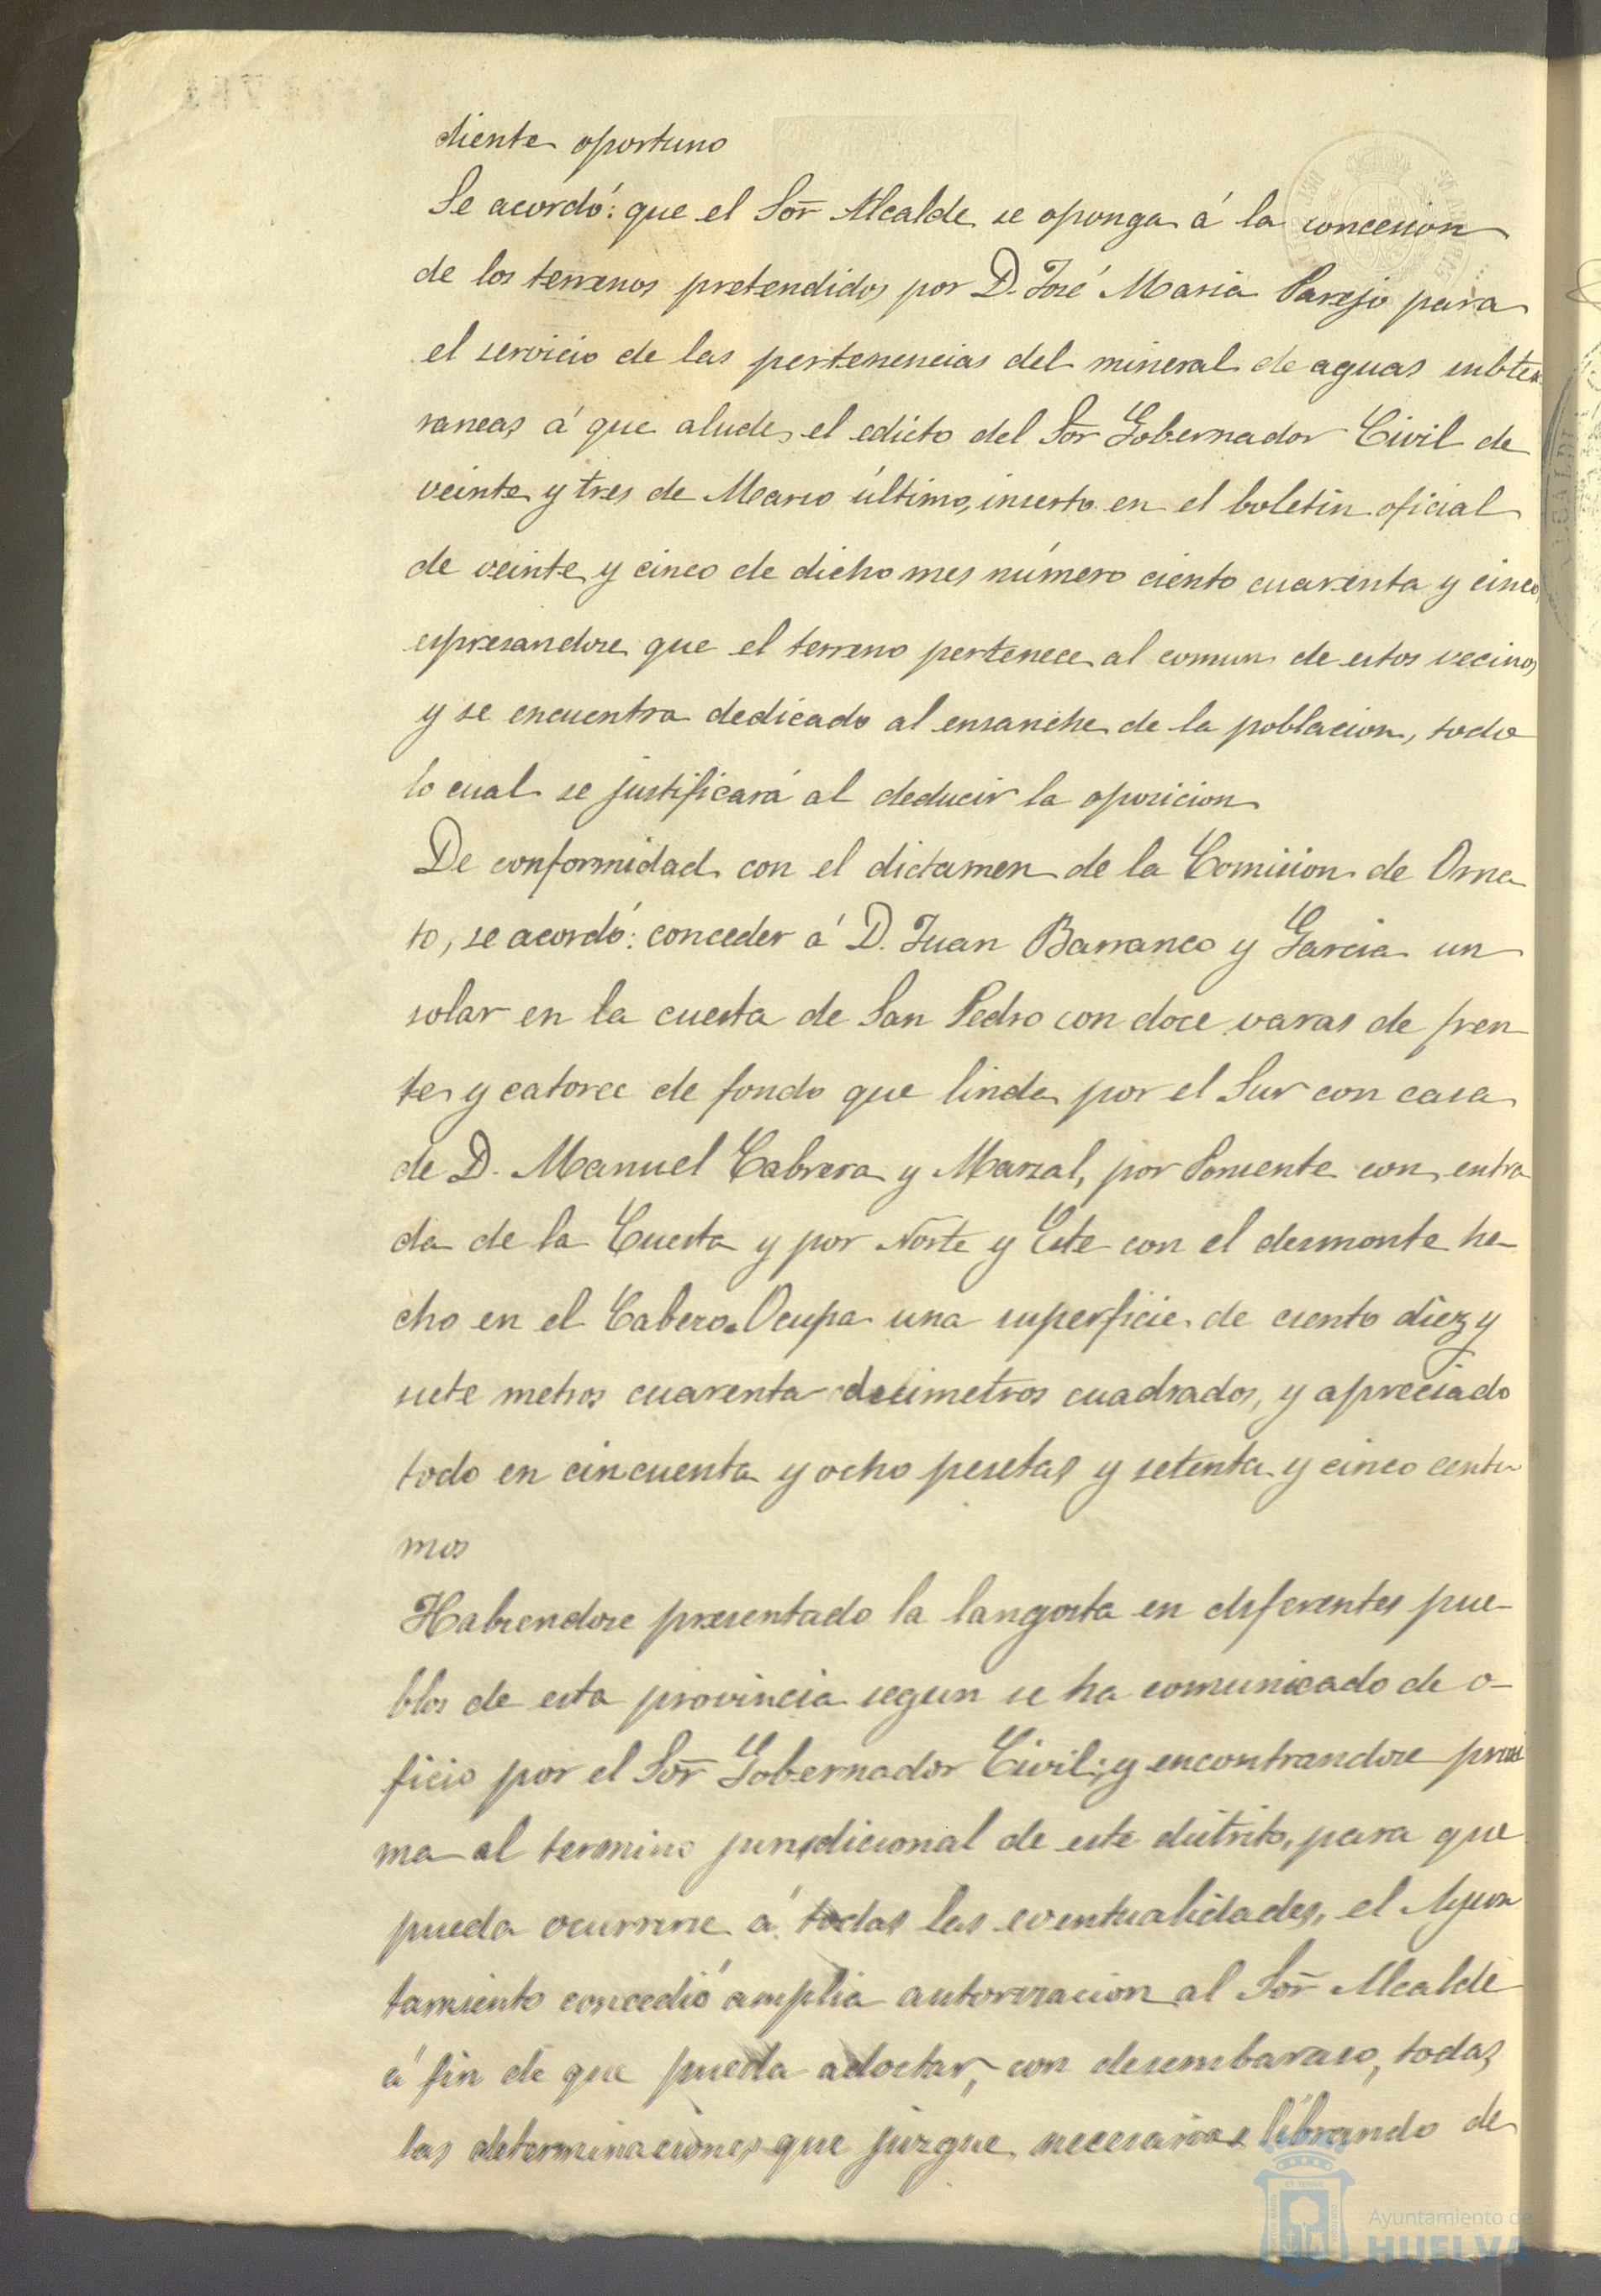 diente oportuno
Se acordó: que el Sor Alcalde se oponga á la concesion
de los terrenos pretendidos por D. José Maria Parejo para
el servicio de las pertenencias del mineral de aguas subter
raneas á que alude el edicto del Sor Gobernador Civil de
veinte y tres de Marzo último, inserto en el boletin oficial
de veinte y cinco de dicho mes número ciento cuarenta y cinco,
espresandose que el terreno pertenece al comun de estos vecinos
y se encuentra dedicado al ensanche de la poblacion, todo
lo cual se justificará al deducir la oposicion
De conformidad con el dictamen de la Comision de Orna
to, se acordó: conceder á D. Juan Barranco y Garcia un
solar en la cuesta de San Pedro con doce varas de fren
te y catorce de fondo que linda por el Sur con casa
de D. Manuel Cabrera y Marzal, por Poniente con entra
da de la Cuesta y por Norte y Este con el desmonte he-
cho en el Cabezo. Ocupa una superficie de ciento diez y
siete metros cuarenta decimetros cuadrados, y apreciado
todo en cincuenta y ocho pesetas y setenta y cinco centi
mos
Habiendose presentado la langosta en diferentes pue-
blos de esta provincia segun se ha comunicado de o-
ficio por el Sor Gobernador Civil; y encontrandose proxi
ma al termino jurisdicional de este distrito, para que
pueda ocurrirse á todas las eventualidades, el Ayun
tamiento concedió amplia autorizacion al Sor Alcalde
á fin de que pueda adoctar, con desembarazo, todas
las determinaciones que juzgue necesarias librando de
Ayuntamiento de
HUELVA